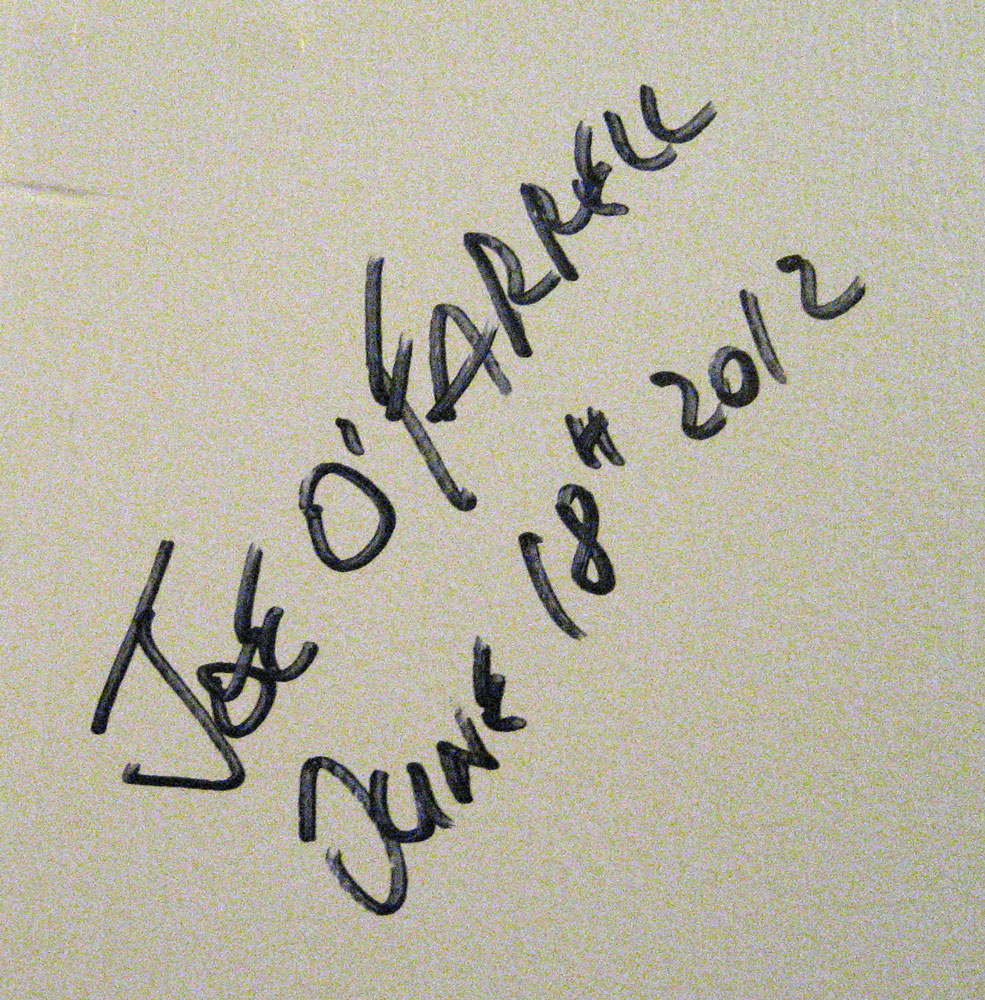 JOE O'FARRELL
JUNE 18TH 2012